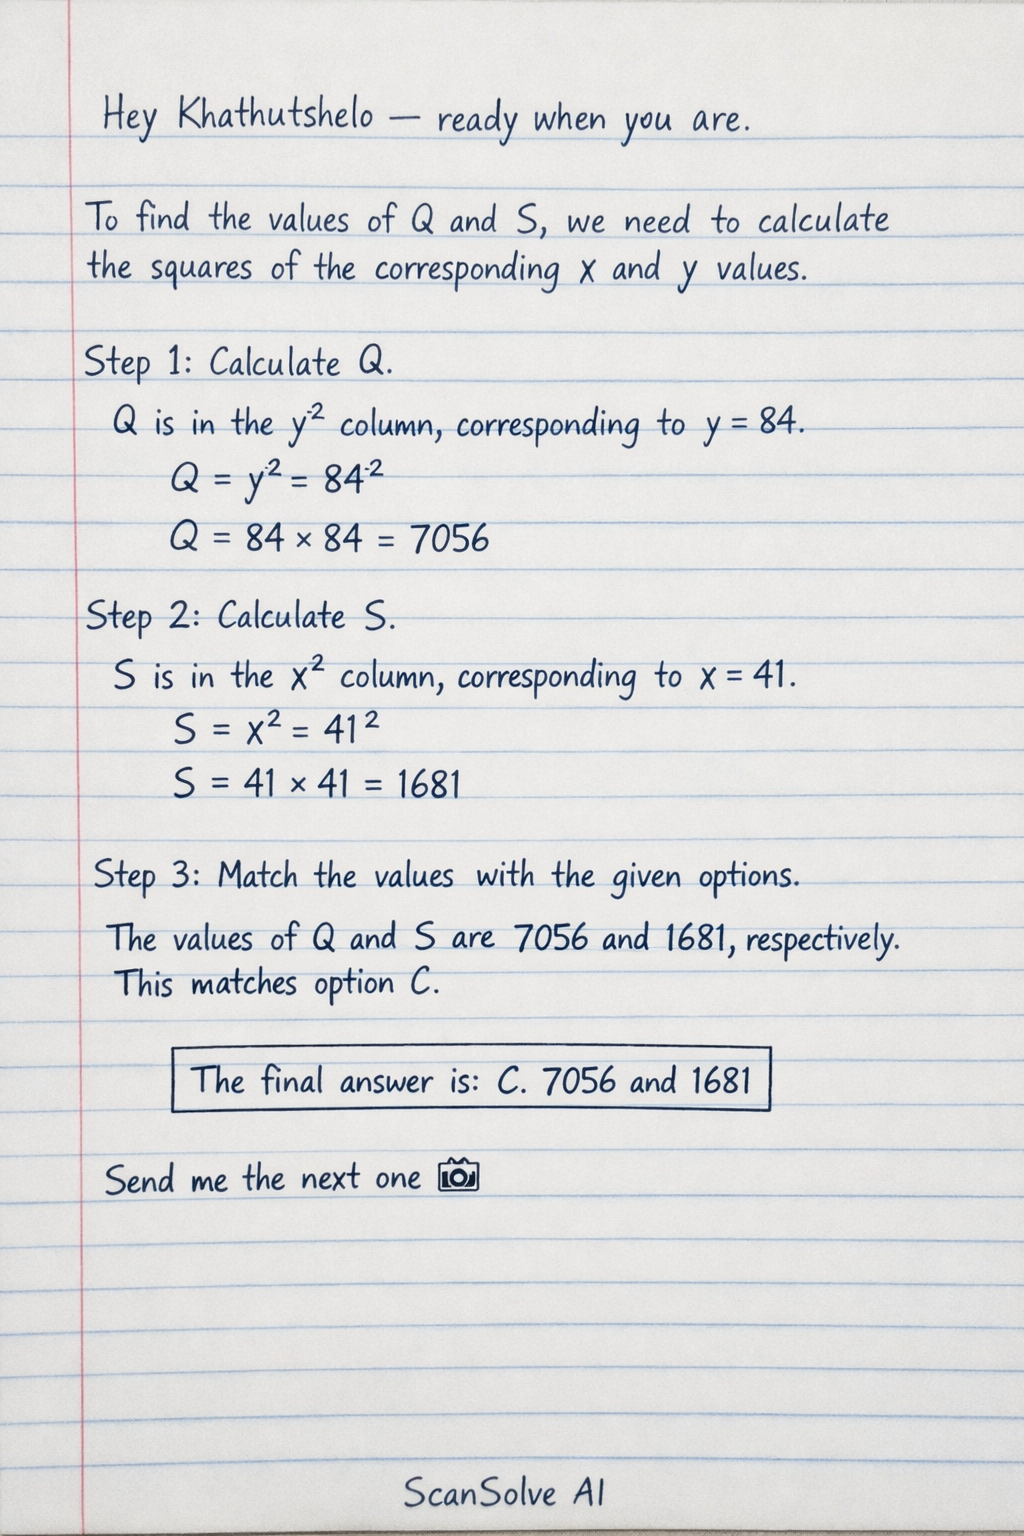 Hey Khathutshelo — ready when you are.
To find the values of Q and S, we need to calculate
the squares of the corresponding x and y values.
Step 1: Calculate Q.
Q is in the y² column, corresponding to y = 84.
Q = y² = 84²
Q = 84 × 84 = 7056
Step 2: Calculate S.
S is in the x² column, corresponding to x = 41.
S = x² = 41²
S = 41 × 41 = 1681
Step 3: Match the values with the given options.
The values of Q and S are 7056 and 1681, respectively.
This matches option C.
The final answer is: C. 7056 and 1681
Send me the next one 📷
ScanSolve AI